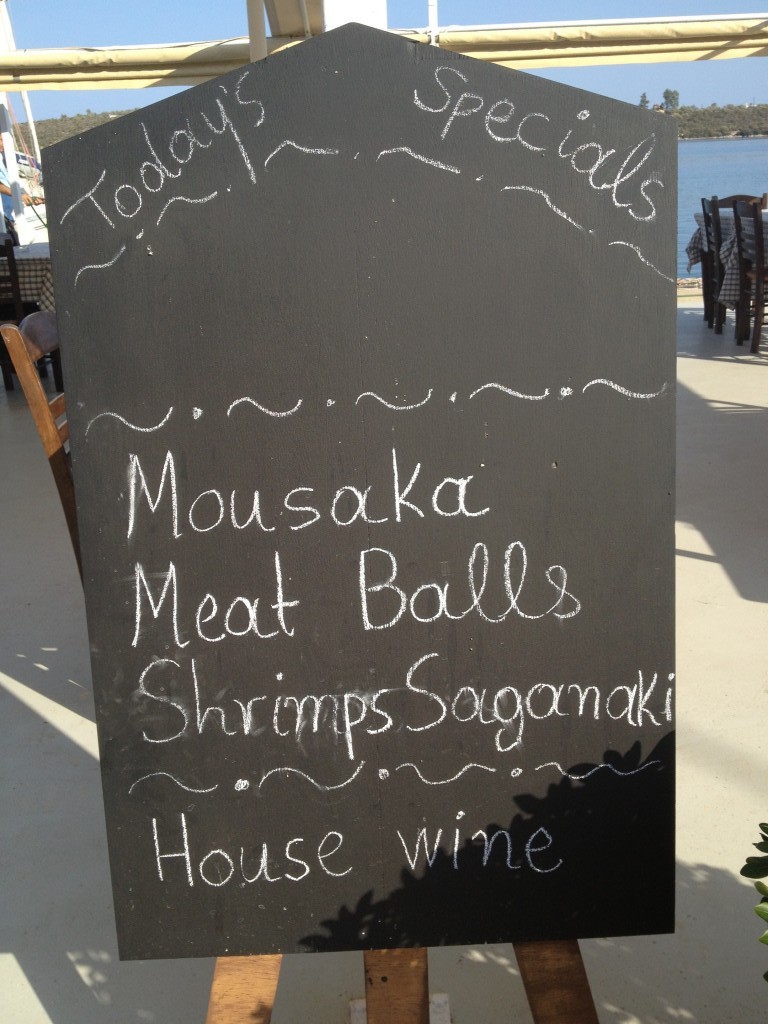 Today's Specials
Mousaka
Meat Balls
Shrimps Saganaki
House wine